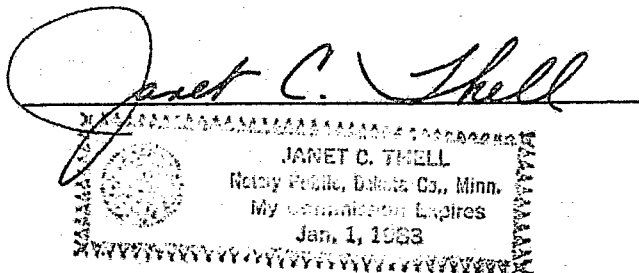 Janet C. Thell
JANET C. THELL
Notary Public, Dakota Co., Minn.
My Commission Expires
Jan. 1, 1983